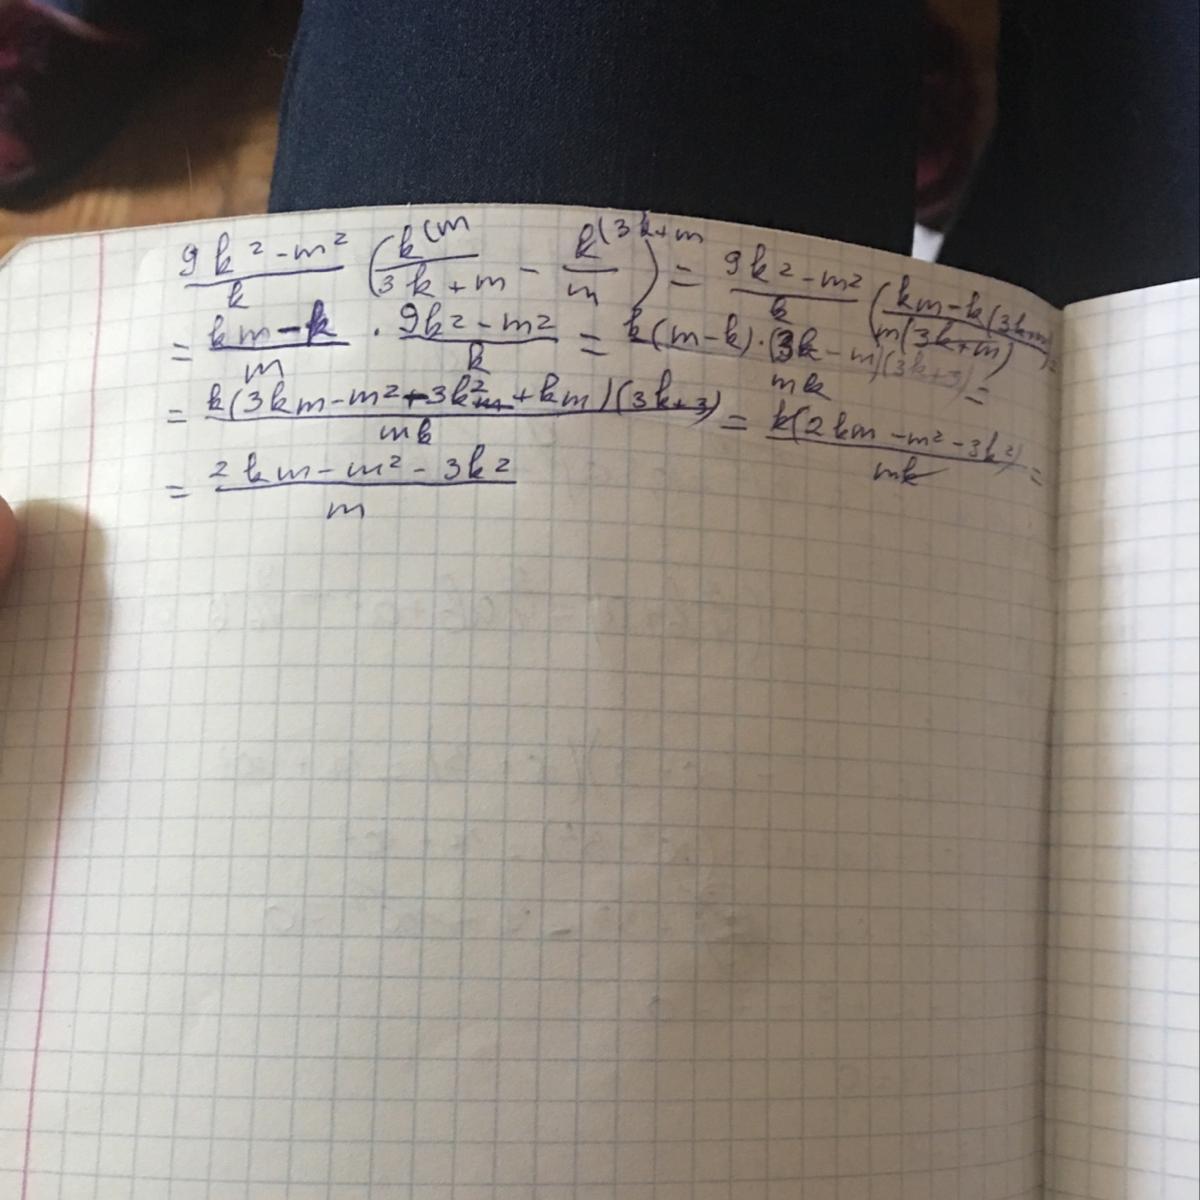 9k² - m² / k (k(m / 3k + m - k(3k+m / m) = 9k² - m² / k (km - k(3k+m) / m(3k+m)) =
= km - k / m · 9k² - m² / k = k(m - k) · (3k - m)(3k+3) / mk =
= k(3km - m² - 3k² + km)(3k+3) / mk = k(2km - m² - 3k²) / mk =
= 2km - m² - 3k² / m